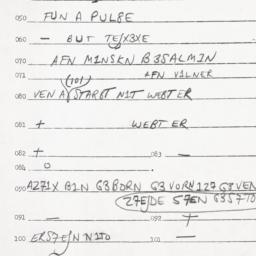 050 FUN A PULBE
060 — BUT TEJX3XE
070 AFN MINSKN B35ALMIN
071 AFN VILNER
(101)
080 VEN A STARBT NIT WEBTER
081 + WEBTER
082 + 083 —
084 O
090 A271X B1N G3BORN G3VORN127 G3VEN
27EJDE 57EN G3570
091 — 092 +
100 ER57EJN NITO 101 —